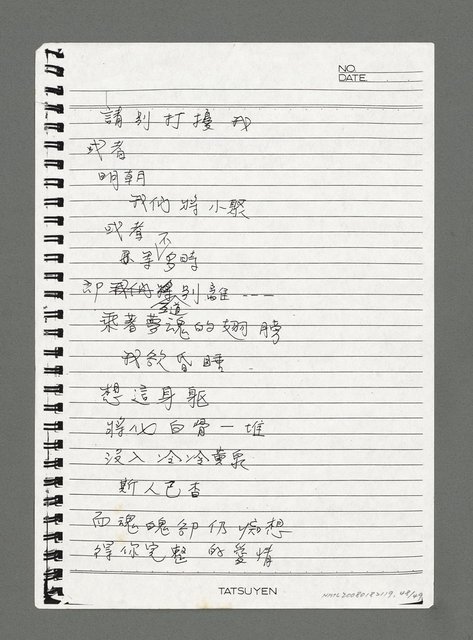 NO.
DATE
請別打擾我
或者
明朝
我們將小聚
或者不
多時
即我們將別離---
互道
乘著夢魂的翅膀
我欲昏睡
想這身軀
將化白骨一堆
沒入冷冷黃泉
斯人已杳
而魂魄卻仍痴想
得你完整的愛情
TATSUYEN
NMTL20080182119, 48/49